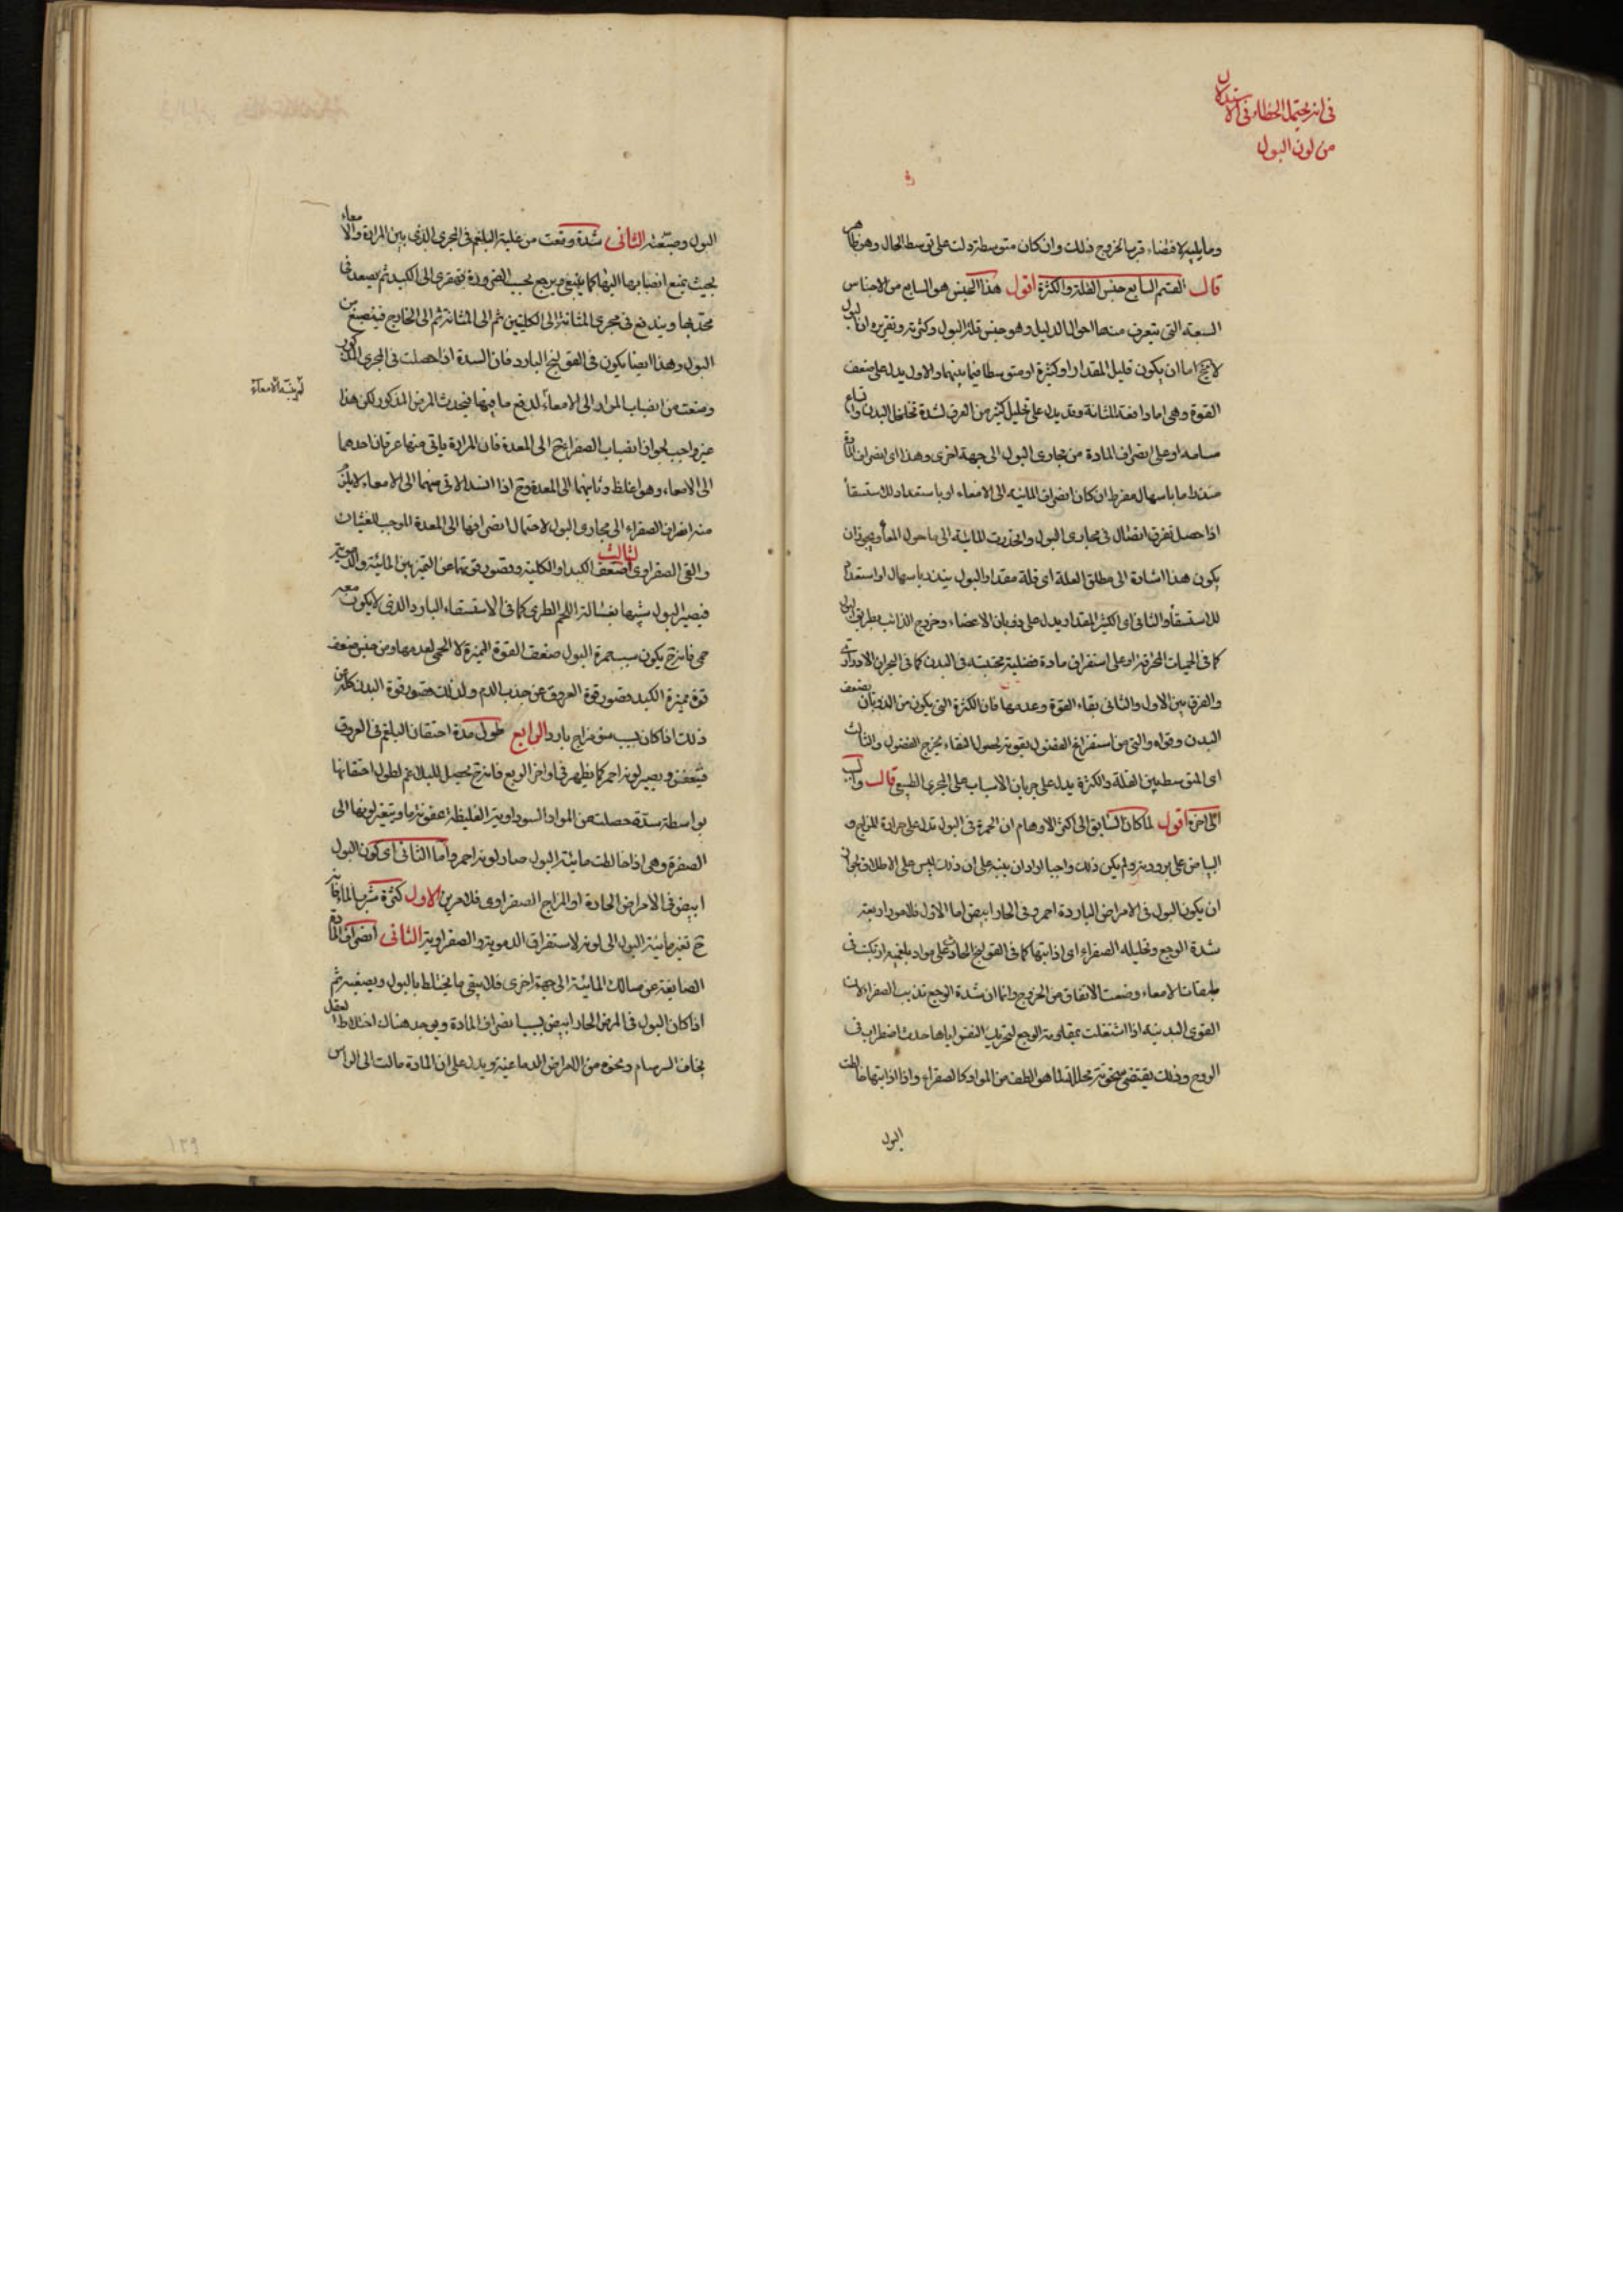 في انه يحتمل الخطاء في الاستدلال
من لون البول
وما يليه لاقتضاء قربها لخروج ذلك وان كان متوسطة دلت على توسط الحال وهو ظاهر
قال القسم السابع جنس القلة والكثرة اقول هذا الجنس هو السابع من الاجناس
السبعة التي يتعرف منها احوال الدليل وهو جنس قلة البول وكثرته وتقريره ان البول
لا يخ اما ان يكون قليل المقدار او كثيره او متوسطا فيما بينهما والاول يدل على ضعف
القوة وهي اما دافعة المثانة وقد يدل على تحليل كثير من العرق لشدة تخلخل البدن واتساع
مسامه او على انصراف المادة من مجاري البول الى جهة اخرى وهذا اى انصراف المادة
منذر اما باسهال مفرط ان كان انصراف المائية الى الامعاء او باستعداد للاستسقاء
اذا حصل تفرق اتصال في مجاري البول وانحدرت المائية الى ما حول المعاء ويجوز ان
يكون هذا اشارة الى مطلق العلة اى قلة مقدار البول ينذر باسهال او استعداد
للاستسقاء والثاني اى الكثير المقدار يدل على ذوبان الاعضاء وخروج الذائب بطريق البول
كما في الحميات المحرقة او على استفراق مادة فضلية محتبسة في البدن كما في البحران الادراري
والفرق بين الاول والثاني بقاء القوة وعدمها فان الكثرة التي يكون من الذوبان يضعف
البدن وقواه والتي من استفراغ الفضول يقويه لحصول النقاء بخروج الفضول والثالث
اى المتوسط بين القلة والكثرة يدل على جريان الاسباب على المجرى الطبيعي قال
الى اخره اقول لما كان السابق الى اكثر الاوهام ان الحمرة في البول تدل على حرارة المزاج و
البياض على برودته ولم يكن ذلك واجبا اراد ان ينبه على ان ذلك ليس على الاطلاق لجواز
ان يكون البول في الامراض الباردة احمر وفي الحار ابيض اما الاول فلامور اربعة
شدة الوجع وتحليله الصفراء اى اذابتها كما في القولنج الحادث على مواد بلغمية ارتبكت في
طبقات الامعاء ومنعت الاثفال من الخروج وانما ان شدة الوجع تذيب الصفراء لان
القوى البدنية اذا اشتغلت بمقاومة الوجع لتحريك النفس اياها حدث اضطراب في
الروح وذلك يقتضي سخونته محللة لما هو الطف من المواد كالصفراء واذا اذابتها خالطت
البول
البول وصبغته الثاني سدة وقعت من غلبة البلغم في المجرى الذي بين المرارة والامعاء
بحيث يمنع انصبابها اليها كما ينبغي ويرجع بحسب الضرورة قهقرى الى الكبد ثم يصعد في
محدبها ويندفع في مجرى المثانة الى الكليتين ثم الى المثانة ثم الى الخارج فينصبغ من
البول وهذا ايضا يكون في القولنج البارد فان السدة اذا حصلت في المجرى المذكور
ومنعت من انصباب المرار الى الامعاء لدفع ما فيها فيحدث المرض المذكور لكن هذا
غير واجب لجواز انصباب الصفراء ح الى المعدة فان المرارة ياتي منها عرقان احدهما
الى الامعاء وهو اغلظ وثانيهما الى المعدة وح اذا انسد الاتي منهما الى الامعاء لا يلزم
منه انصراف الصفراء الى مجاري البول لاحتمال انصرافها الى المعدة الموجب للغثيان
والقي الصفراوي الثالث ضعف الكبد او الكلية وقصور قوتهما عن التميز بين المائية والدموية
فيصير البول شبيها بغسالة اللحم الطري كما في الاستسقاء البارد الذي لا يكون معه
حمى فانه ح يكون سبب حمرة البول ضعف القوة المميزة لا الحمى لعدمها ومن ضعف
قوة مميزة الكبد قصور قوة العروق عن جذب الدم ولذلك قصور قوة البدن كله عن
ذلك اذا كان بسبب سوء مزاج بارد الرابع طول مدة احتقان البلغم في العروق
فيتعفن ويصير لونه احمر كما يظهر في اواخر الربع فانه ح يحصل للبلاغم لطول احتقانها
بواسطة سدة حصلت من المواد السوداوية الغليظة عفونة ما ويتغير لونها الى
الصفرة وهي اذا خالطت مائية البول صار لونه احمر واما الثاني اى كون البول
ابيض في الامراض الحادة او المزاج الصفراوي فلامرين الاول كثرة شرب الماء فانه
ح تغير مائية البول الى لونه لاستفراق الدموية والصفراوية الثاني انصراف المادة
الصابغة عن مسالك المائية الى جهة اخرى فلا يبقى ما يختلط بالبول ويصبغه ثم
اذا كان البول في المرض الحار ابيض بسبب انصراف المادة ويوجد هناك اختلاط العقل
يخاف السرسام ونحوه من الامراض الدماغية ويدل على ان المادة مالت الى الراس
١٢٩